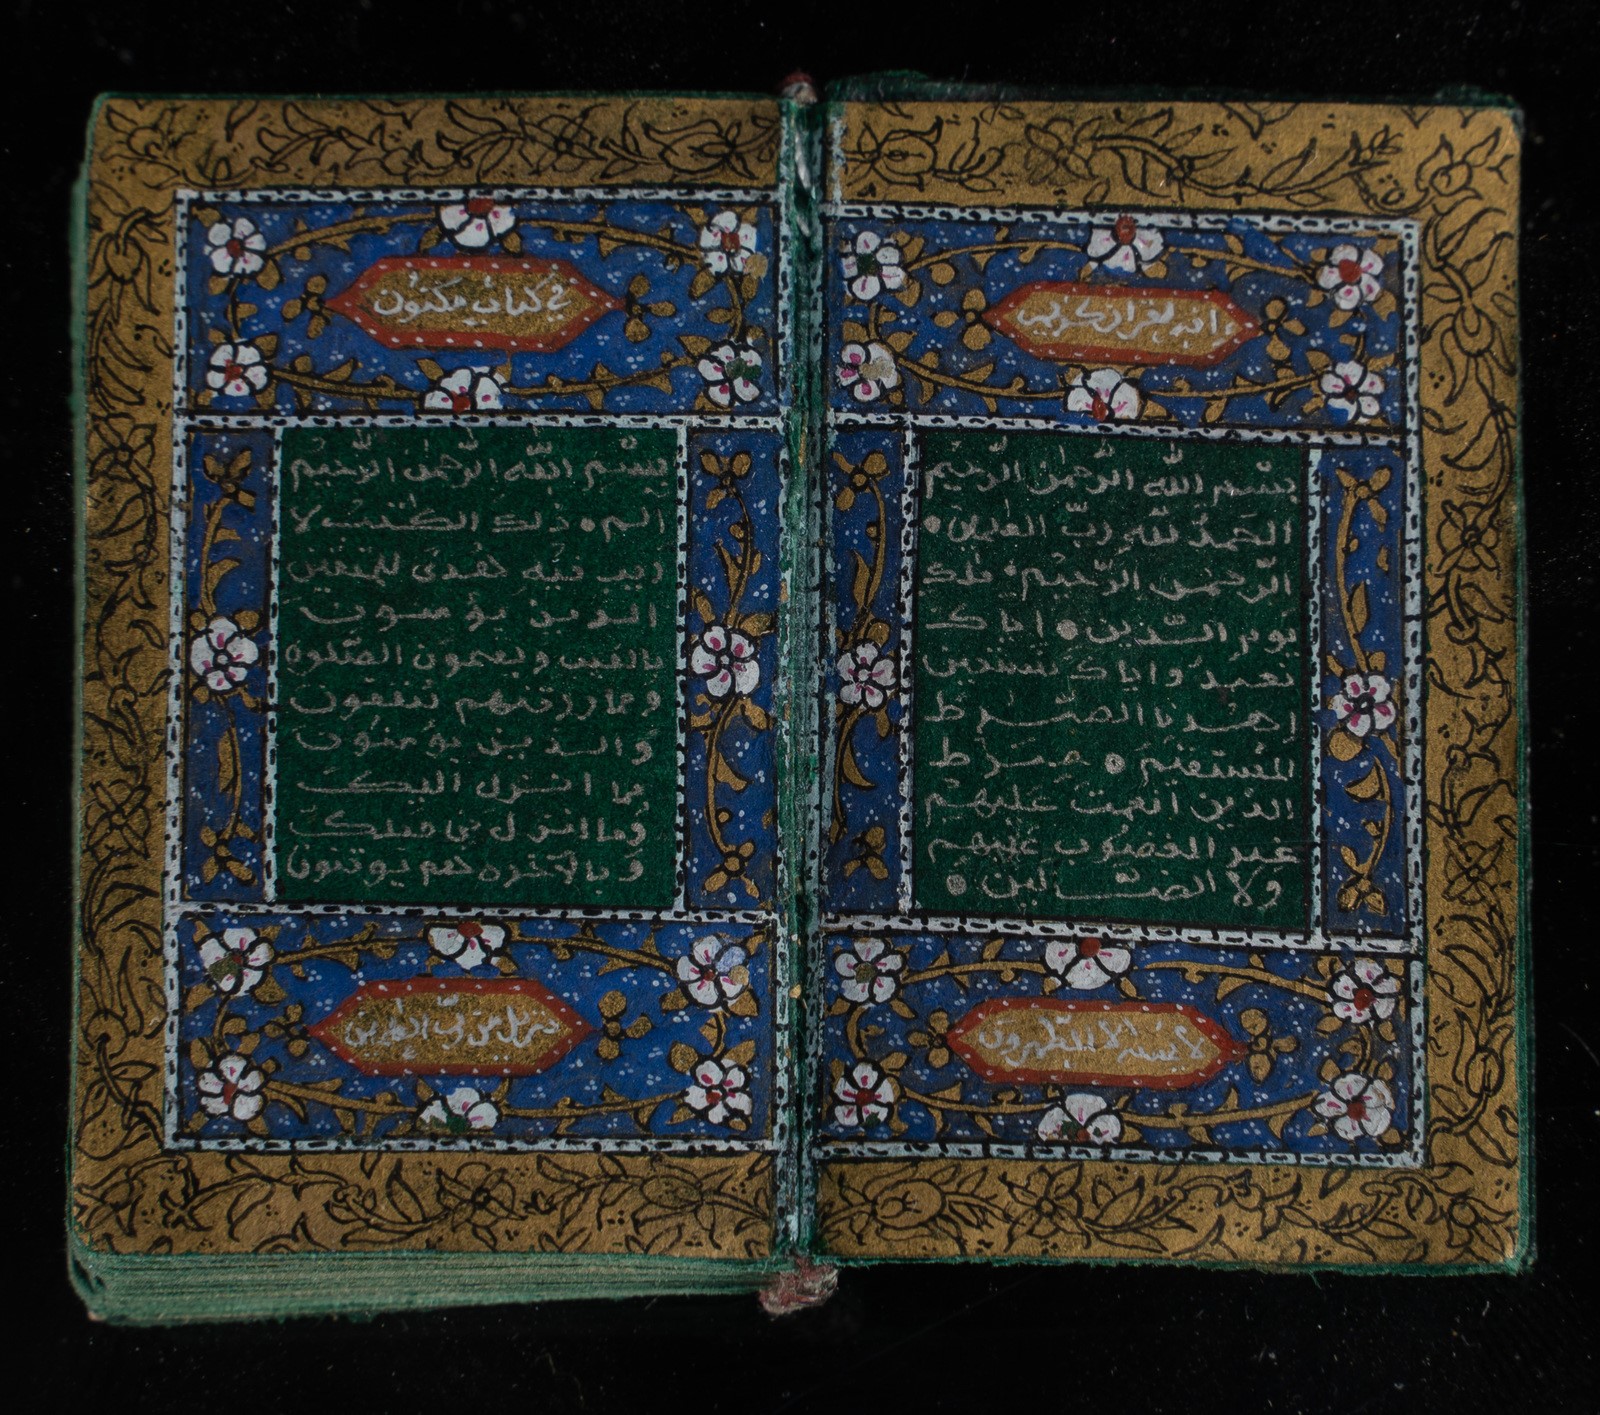 وانه لقران كريم
بسم الله الرحمن الرحيم
الحمد لله رب العلمين
الرحمن الرحيم ملك
يوم الدين اياك
نعبد واياك نستعين
اهدنا الصرط
المستقيم صرط
الذين انعمت عليهم
غير المغضوب عليهم
ولا الضالين
لا يمسه الا المطهرون
في كتاب مكنون
بسم الله الرحمن الرحيم
الم ذلك الكتب لا
ريب فيه هدى للمتقين
الذين يؤمنون
بالغيب ويقيمون الصلوة
ومما رزقنهم ينفقون
والذين يؤمنون
بما انزل اليك
وما انزل من قبلك
وبالاخرة هم يوقنون
تنزيل من رب العلمين